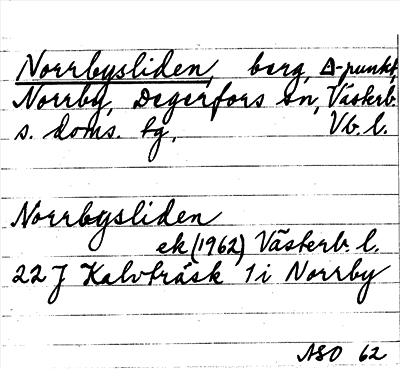 Norrbysliden, berg, Δ-punkt,
Norrby, Degerfors sn, Västerb.
s. doms. tg, Vb. l.
Norrbysliden
ek (1962) Västerb. l.
22 J Kalvträsk 1 i Norrby
ASO 62